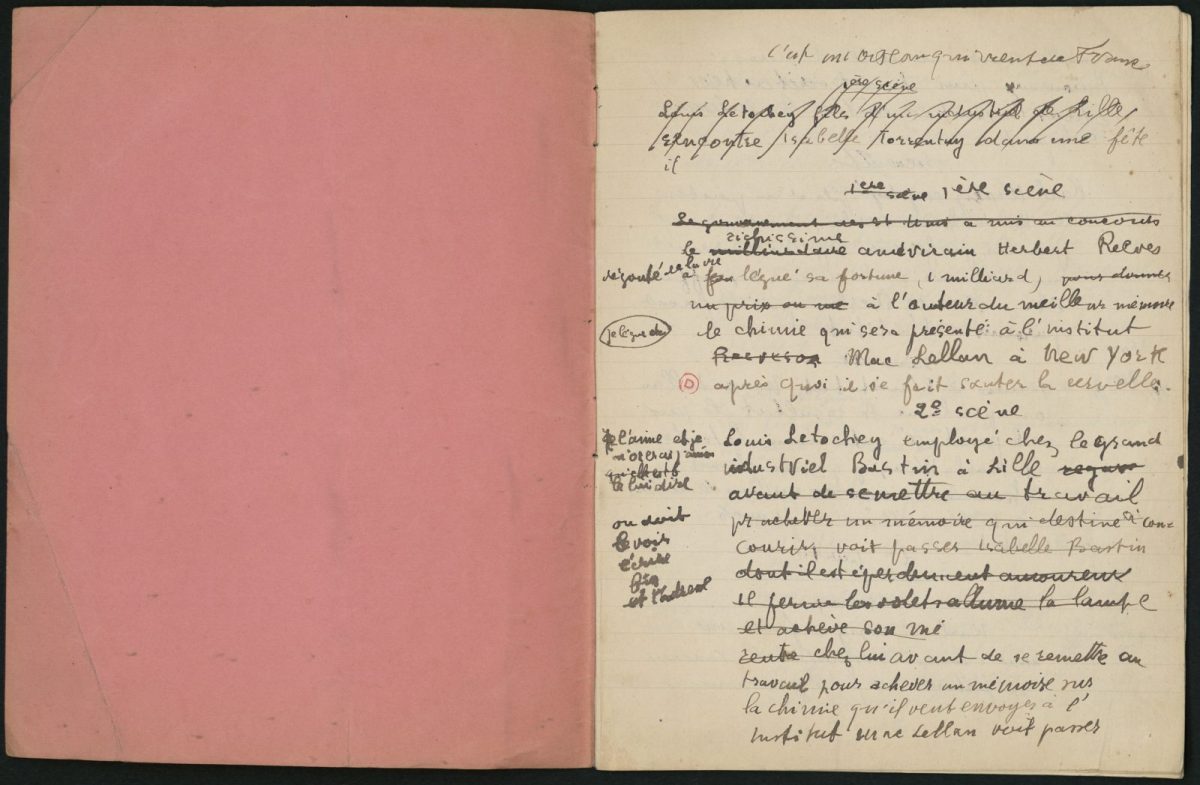 c'est un oiseau qui vient de France
1ère scène
Louis Letochey fils d'un industriel de Lille
rencontre Isabelle Torrentuy dans une fête
il
1ère scène 1ère scène
Le gouvernement des Et Unis a mis au concours
richissime
le milliardaire américain Herbert Reeves
dégouté de la vie à légué sa fortune, (1 milliard, pour donner
un prix au me à l'auteur du meilleur mémoire
je lègue
de chimie qui sera présenté à l'institut
Mac Lellan à New York
après quoi il se fait sauter la cervelle.
2e scène
Je l'aime et je
n'oserai jamais
le lui dire
Louis Letochey employé chez le grand
industriel Bastin à Lille
avant de se mettre au travail
pr achever un mémoire qui destine à con-
courir, voit passer Isabelle Bastin
on doit
le voir
écrire
dont il est éperdument amoureux
il ferme les volets allume la lampe
et achève son mé
rentre chez lui avant de se remettre au
travail pour achever un mémoire sur
la chimie qu'il veut envoyer à l'
institut Mac Lellan voit passer